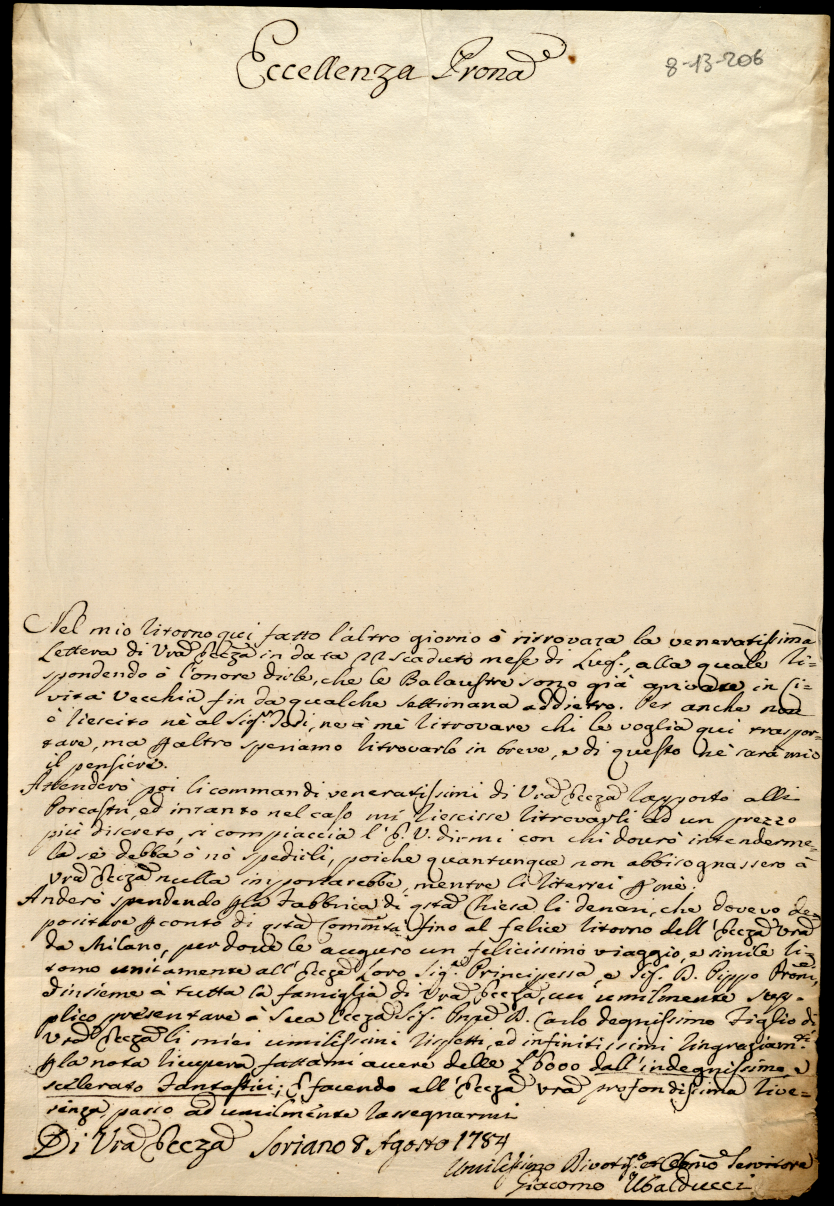 Eccellenza Prona
8-13-206
Nel mio ritorno qui fatto l'altro giorno ò ritrovata la veneratissima
Lettera di Vra Eccza in data 22 scaduto mese di Lug., alla quale ri-
spondendo ò l'onore dirle, che le Balaustre sono già arivate in Ci-
vità Vecchia fin da qualche settimana addietro. Per anche non
ò riescito nè al Sigr Todi, ne à mè ritrovare chi le voglia qui traspor-
tare, ma p altro speriamo ritrovarlo in breve, e di questo nè sarà mio
il pensiere.
Attenderò poi li commandi veneratissimi di Vra Eccza rapporto alli
Porcastri, ed intanto nel caso mi riescisse ritrovarli ad un prezzo
più discreto, si compiaccia l'E. V. dirmi con chi dovrò intenderme-
la se debba ò nò spedirli, poiche quantunque non abbisognassero à
Vra Eccza nulla importarebbe, mentre li riterrei p mè.
Anderò spendendo p la Fabbrica di qsta Chiesa li denari, che dovevo de-
positare p conto di qsta Commta fino al felice ritorno dell'Eccza Vra
da Milano, per dove le auguro un felicissimo viaggio, e simile ri-
torno unitamente all'Eccza Loro Sigra Principessa, e Sigr D. Pippo Proni,
e insieme à tutta la famiglia di Vra Eccza, cui umilmente sup-
plico presentare à Sua Eccza Sigr Pnpe D. Carlo degnissimo Figlio di
Vra Eccza li miei umilissimi rispetti, ed infinitissimi ringraziamti
p la nota ricupera fattami avere delle £ 6000 dall'indegnissimo, e
scellerato Fantastici; E facendo all'Eccza Vra profondissima rive-
renza, passo ad umilmente rassegnarmi
Di Vra Eccza Soriano 8 Agosto 1784
Umilissimo Divotiss.o et Obmo Servitore
Giacomo Ubalducci